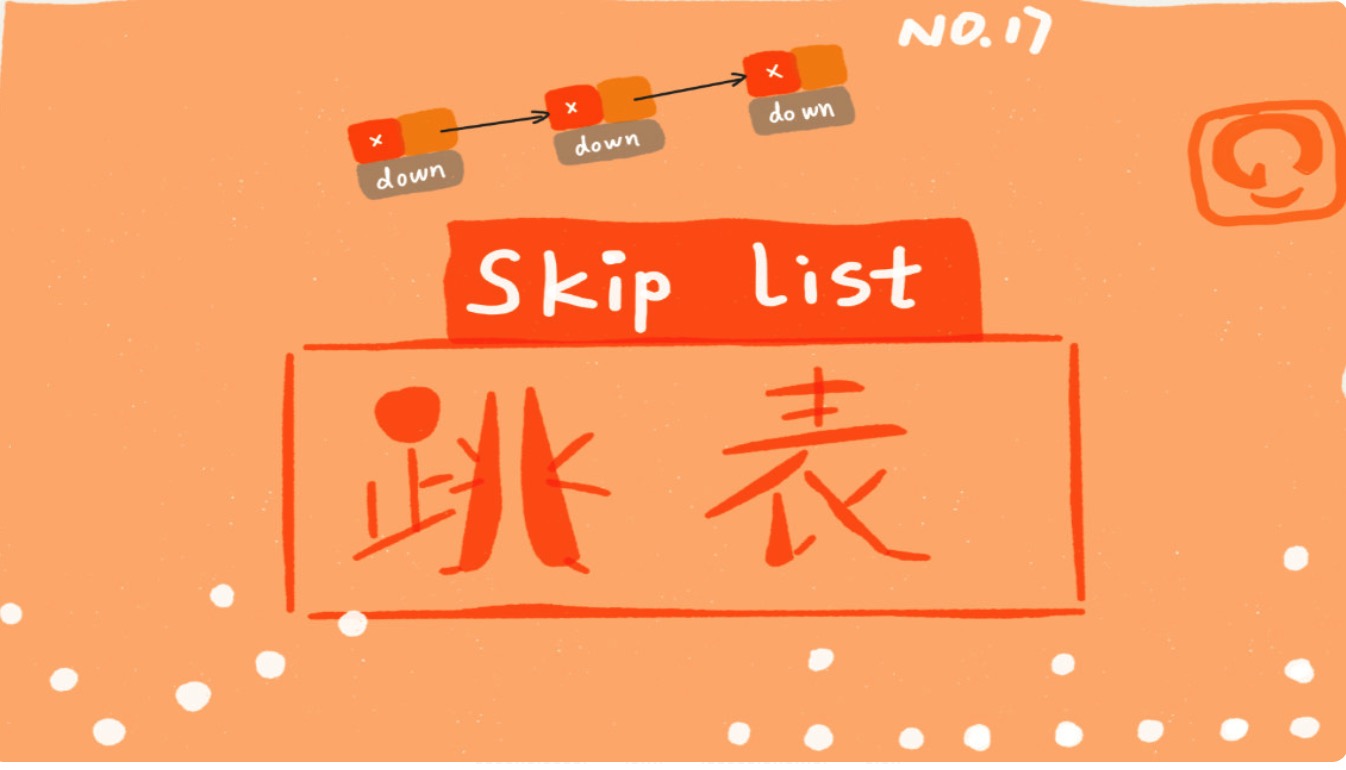 NO.17
× × ×
down down down
Skip list
跳表